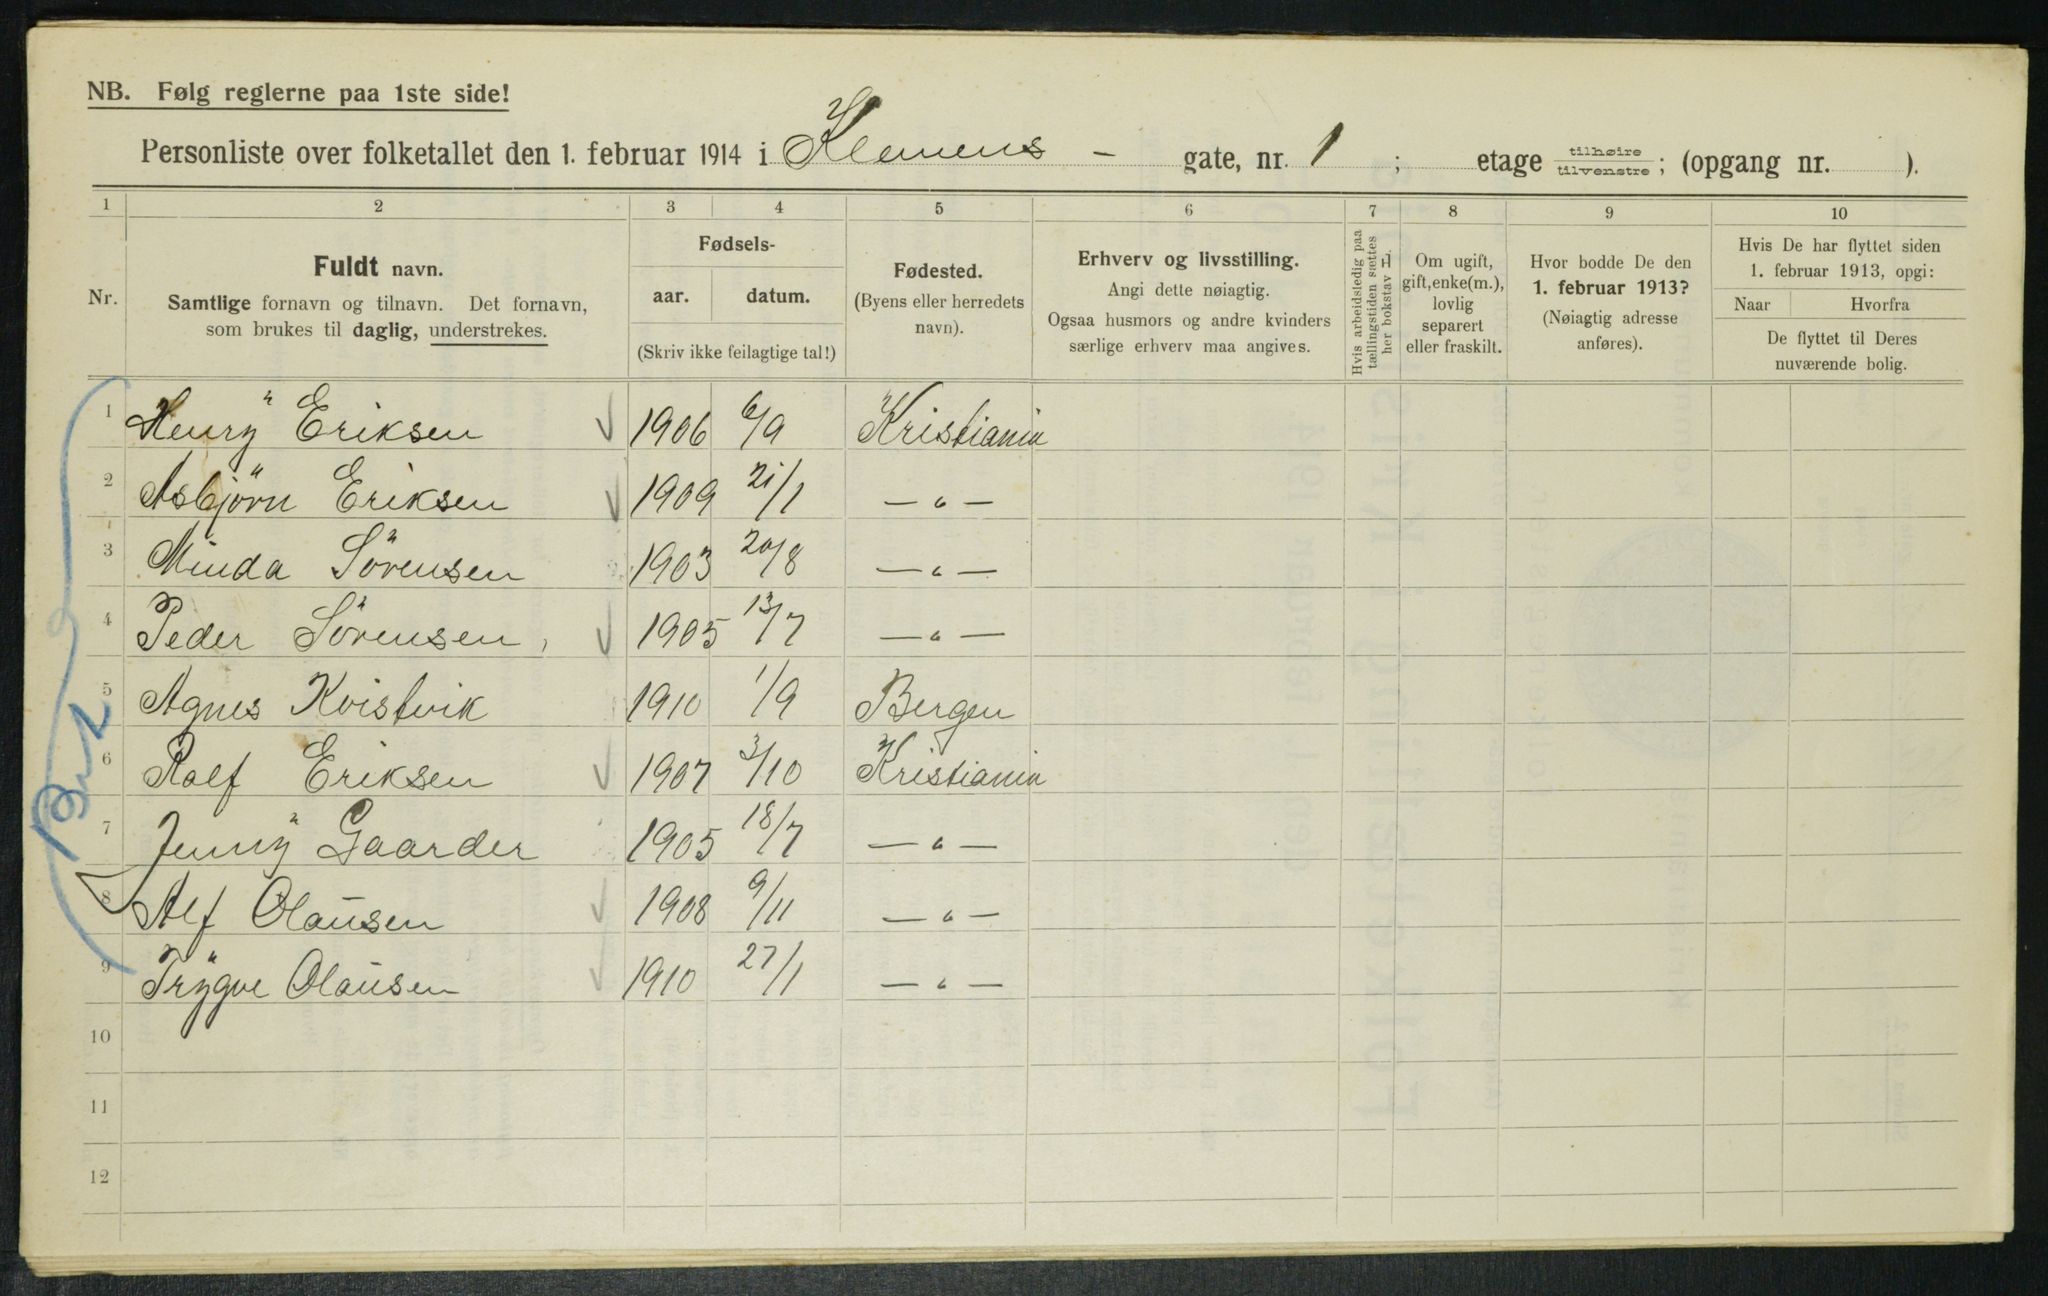 NB. Følg reglerne paa 1ste side!
Personliste over folketallet den 1. februar 1914 i Klemens - gate, nr. 1 ; etage tilhøire tilvenstre ; (opgang nr. ).
1 2 3 4 5 6 7 8 9 10
Nr.
Fuldt navn.
Samtlige fornavn og tilnavn. Det fornavn,
som brukes til daglig, understrekes.
Fødsels-
aar. datum.
(Skriv ikke feilagtige tal!)
Fødested.
(Byens eller herredets
navn).
Erhverv og livsstilling.
Angi dette nøiagtig.
Ogsaa husmors og andre kvinders
særlige erhverv maa angives.
Hvis arbeidsledig paa
tællingstiden sættes
her bokstav L.
Om ugift,
gift, enke(m.),
lovlig
separert
eller fraskilt.
Hvor bodde De den
1. februar 1913?
(Nøiagtig adresse
anføres).
Hvis De har flyttet siden
1. februar 1913, opgi:
Naar Hvorfra
De flyttet til Deres
nuværende bolig.
1 Henry Eriksen 1906 6/9 Kristiania
2 Asbjörn Eriksen 1909 21/1 — „ —
3 Minda Sörensen 1903 20/8 — „ —
4 Peder Sörensen, 1905 13/7 — „ —
5 Agnes Kvistvik 1910 1/9 Bergen
6 Ralf Eriksen 1907 3/10 Kristiania
7 Jenny Gaarder 1905 18/7 — „ —
8 Alf Olausen 1908 9/11 — „ —
9 Trygve Olausen 1910 27/1 — „ —
10
11
12